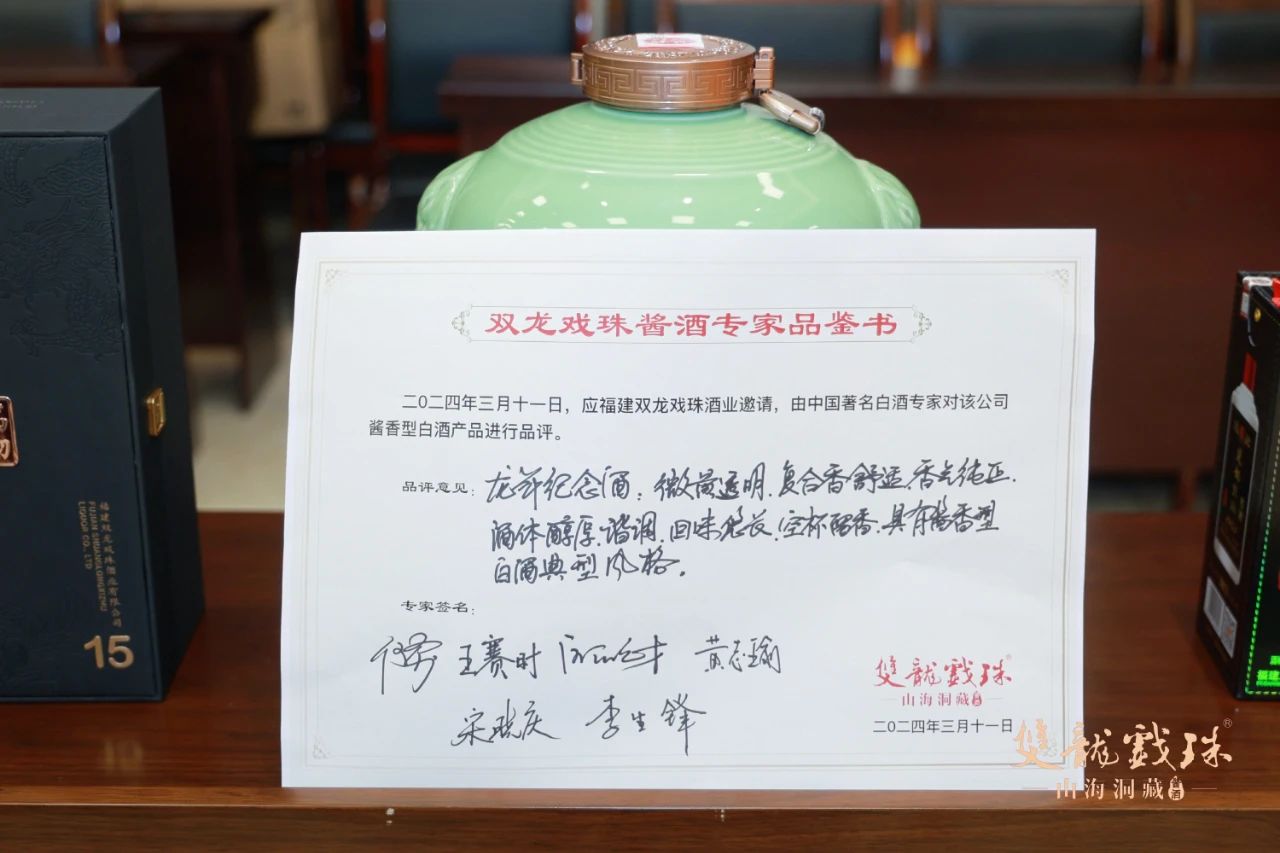 双龙戏珠酱酒专家品鉴书
二〇二四年三月十一日，应福建双龙戏珠酒业邀请，由中国著名白酒专家对该公司
酱香型白酒产品进行品评。
品评意见：龙年纪念酒：微黄透明、复合香舒适、香气纯正、
酒体醇厚、谐调、回味悠长、空杯留香、具有酱香型
白酒典型风格。
专家签名：
王赛时 黄志瑜
宋晓庆 李生锋
雙龍戲珠
山海洞藏酱酒
二〇二四年三月十一日
福建双龙戏珠酒业有限公司
FUJIAN SHUANGLONGXIZHU
LIQUOR CO., LTD
15
雙龍戲珠®
山海洞藏酱酒